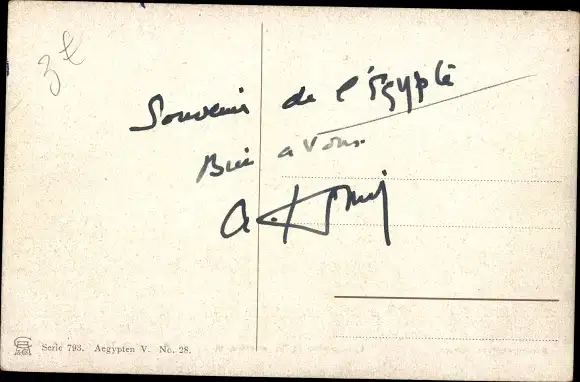 3€
Souvenir de l'Égypte
Bien a vous
Serie 793. Aegypten V. No. 28.